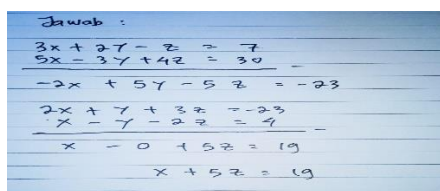 Jawab :
3x + 2y - z = 7
5x - 3y + 4z = 30
-2x + 5y - 5z = -23
2x + y + 3z = -23
x - y - 2z = 4
x - 0 + 5z = 19
x + 5z = 19